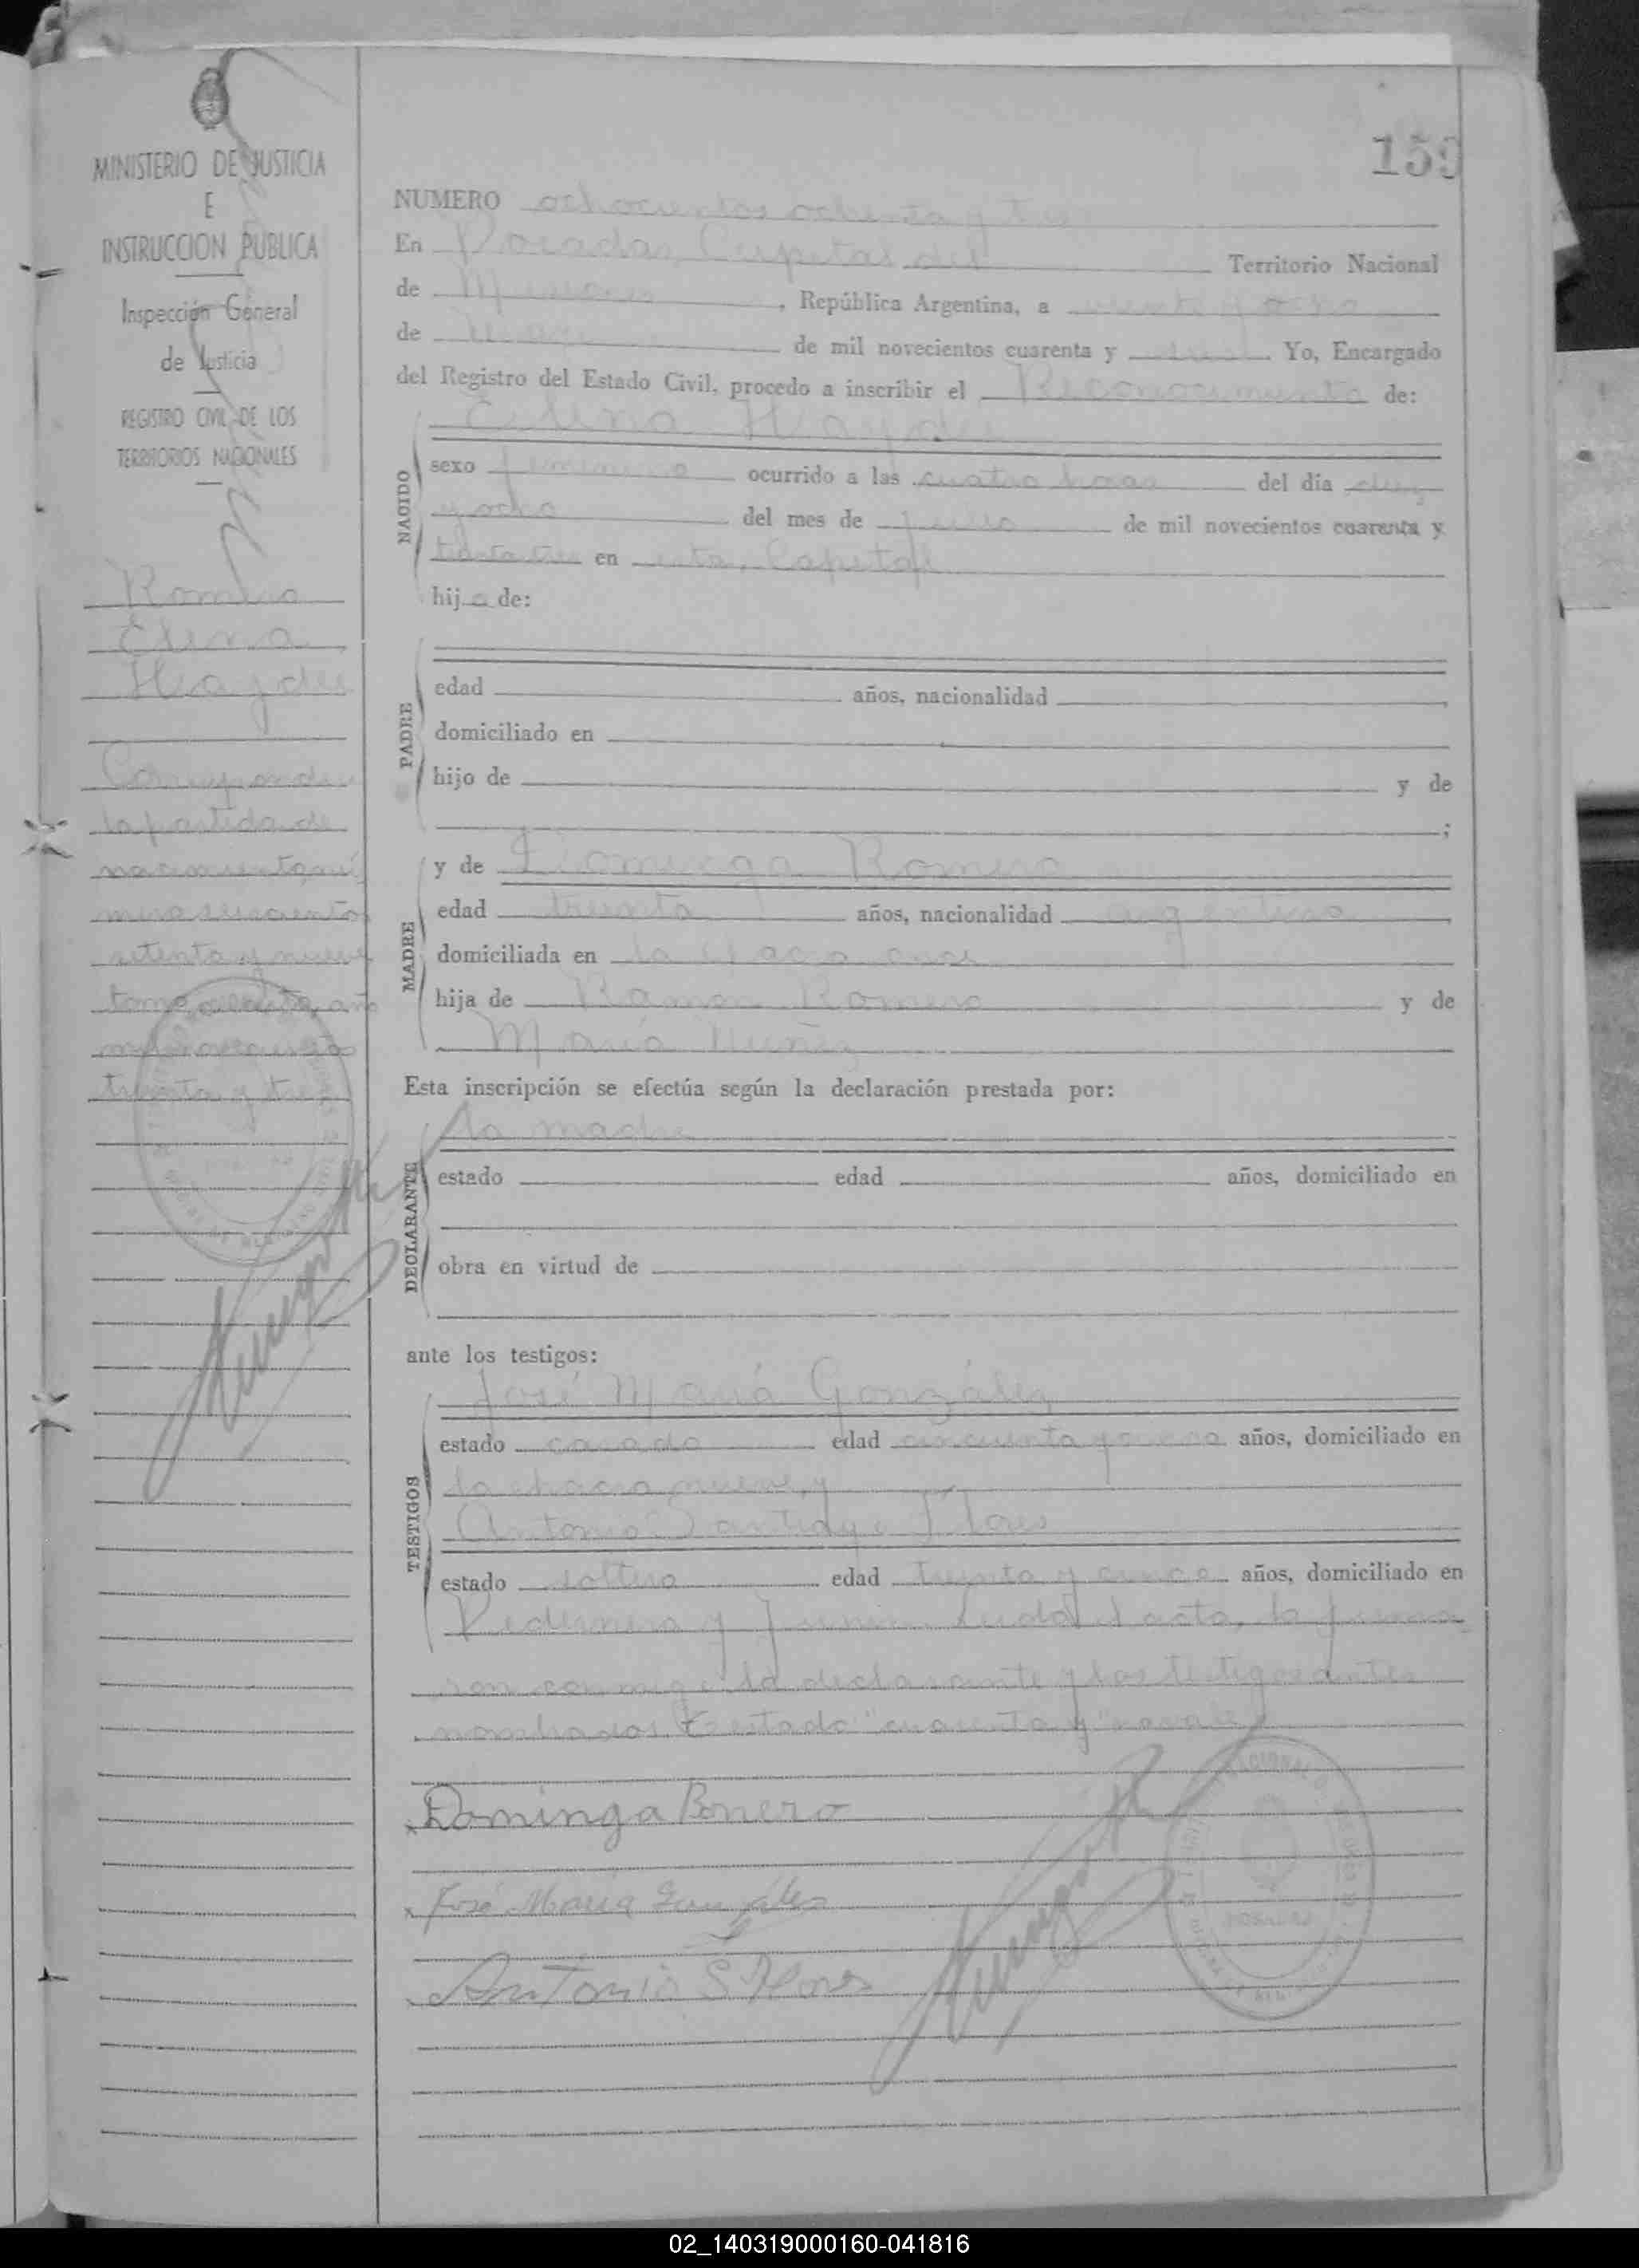 MINISTERIO DE JUSTICIA
E
INSTRUCCION PUBLICA
Inspección General
de Justicia
REGISTRO CIVIL DE LOS
TERRITORIOS NACIONALES
Romero
Elena
Haydee
Corresponde a
la partida de
nacimiento nú
mero seiscientos
setenta y nueve
tomo año
mil novecientos
treinta y tres
159
NUMERO ochocientos ochenta y tres
En Posadas, Capital del Territorio Nacional
de Misiones, República Argentina, a veinte y ocho
de de mil novecientos cuarenta y Yo, Encargado
del Registro del Estado Civil, procedo a inscribir el Reconocimiento de:
Elena Haydee
NACIDO
sexo femenino ocurrido a las cuatro horas del día diez
y ocho del mes de de mil novecientos cuarenta y
treinta y tres en esta Capital
hija de:
PADRE
edad años, nacionalidad
domiciliado en
hijo de y de
;
MADRE
y de Dominga Romero
edad treinta años, nacionalidad argentina
domiciliada en la chacra nueve
hija de Ramón Romero y de
María Nuñez
Esta inscripción se efectúa según la declaración prestada por:
DECLARANTE
la madre
estado edad años, domiciliado en
obra en virtud de
ante los testigos:
TESTIGOS
José María González
estado casado edad cincuenta y años, domiciliado en
la chacra nueve, y
Antonio Santiago Flores
estado soltero edad treinta y cinco años, domiciliado en
Pedernera y Junín. Leída el acta, la firma
ron conmigo la declarante y los testigos antes
nombrados. Testado "cuarenta y" no vale
Dominga Romero
José María González
Antonio S Flores
POSADAS
02_140319000160-041816